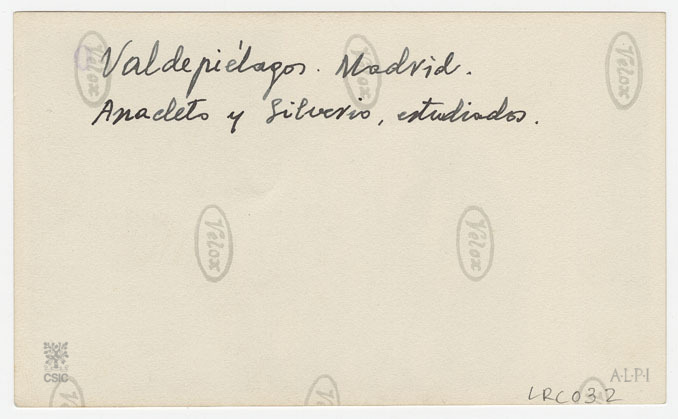 Valdepiélagos. Madrid.
Anacleto y Silverio, estudiados.
Velox
Velox
Velox
Velox
Velox
CSIC
A·L·P·I
LRC032